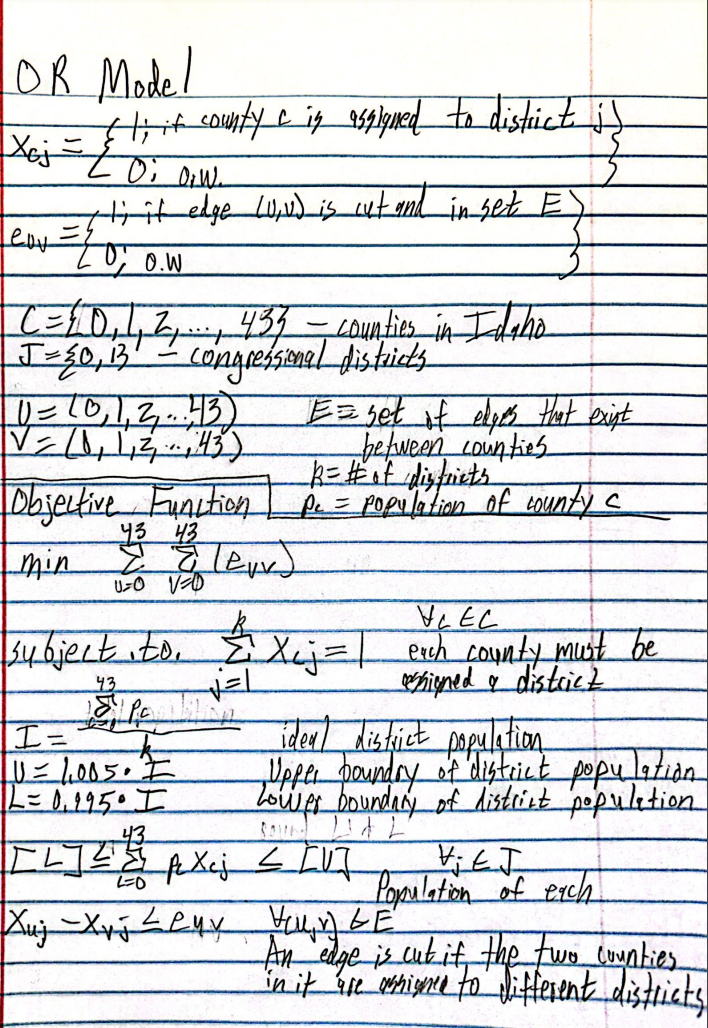 OR Model
X_cj = { 1; if county c is assigned to district j }
0; o.w.
e_uv = { 1; if edge (u,v) is cut and in set E }
0; o.w
C = {0, 1, 2, ..., 43} - counties in Idaho
J = {0, 1} - congressional districts
U = (0, 1, 2, ..., 43) E ≡ set of edges that exist
V = (0, 1, 2, ..., 43) between counties
k = # of districts
Objective Function p_c = population of county c
min Σ_{u=0}^{43} Σ_{v=0}^{43} (e_uv)
subject to. Σ_{j=1}^{k} X_cj = 1 ∀c ∈ C each county must be
assigned a district
I = Σ_{c=0}^{43} p_c / k ideal district population
U = 1.005 • I Upper boundry of district population
L = 0.995 • I Lower boundry of district population
[L] ≤ Σ_{c=0}^{43} p_c x_cj ≤ [U] ∀j ∈ J
Population of each
X_uj - X_vj ≤ e_uv ∀(u,v) ∈ E
An edge is cut if the two counties
in it are assigned to different districts